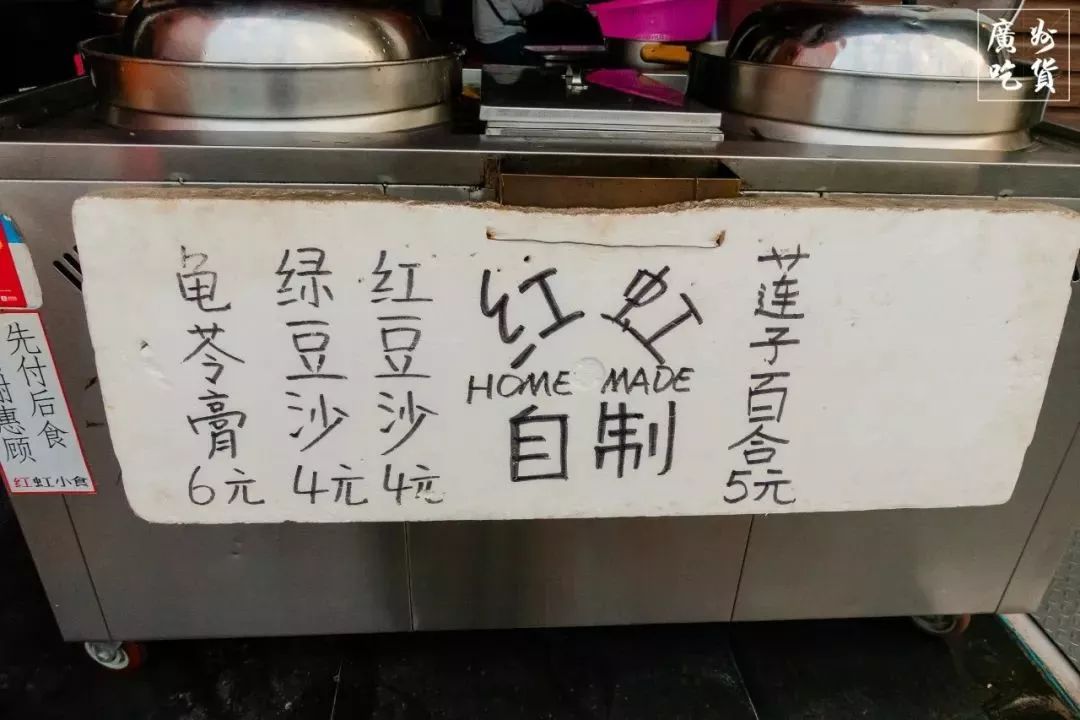 廣州
吃貨
龟苓膏
6元
绿豆沙
4元
红豆沙
4元
红虹
HOME MADE
自制
莲子百合
5元
先付后食
谢惠顾
红虹小食